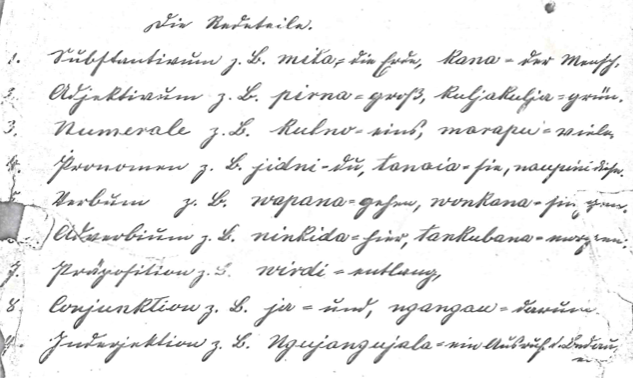 Die Redeteile.
1. Substantivum z. B. mita = die Erde, kana = der Mensch.
2. Adjektivum z. B. pirna = groß, kuljakulja = grün.
3. Numerale z. B. kulno = eins, marapu = viele,
4. Pronomen z. B. jidni = du, tanaia = sie, naupini
Verbum z. B. wapana = gehen, wonkana =
Adverbium z. B. ninkida = hier, tankubana = morgen.
7. Präposition z. B. wirdi = entlang,
8. Conjunktion z. B. ja = und, ngangau = darum.
Inderjektion z. B. Ngujangujala = ein Ausruf d. Bedau